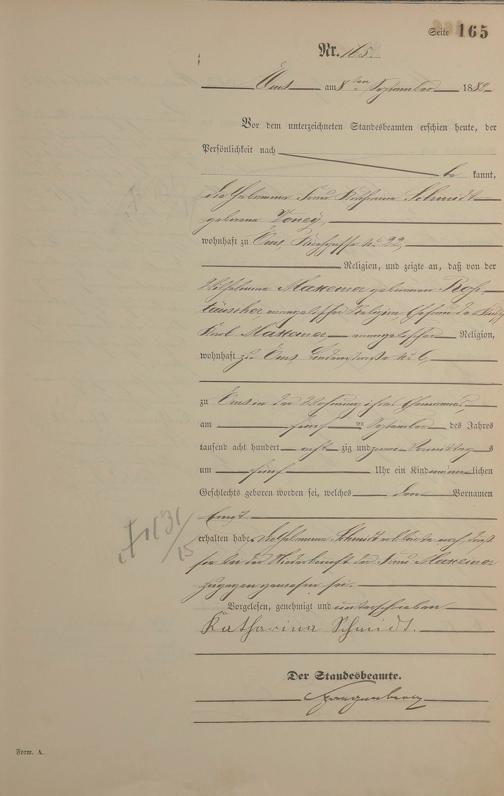 Seite 165
Nr. 165
Ems am 8ten September 188
Vor dem unterzeichneten Standesbeamten erschien heute, der
Persönlichkeit nach
be kannt,
die Hebamme Frau Katharina Schmidt
geborene
wohnhaft zu Ems, No 22
Religion, und zeigte an, daß von der
Wilhelmine Maxeiner geborenen Roß-
täuscher evangelischer Religion Ehefrau des
Karl Maxeiner evangelischer Religion,
wohnhaft zu Ems No 6
zu Ems in der Wohnung ihres Ehemannes
am fünften September des Jahres
tausend acht hundert acht zig und Vormittags
um fünf Uhr ein Kind männlichen
Geschlechts geboren worden sei, welches den Vornamen
Ernst
erhalten habe. Die Hebamme Schmidt erklärte noch, daß
sie bei der Niederkunft der Frau Maxeiner
zugegen gewesen sei.
Vorgelesen, genehmigt und unterschrieben
Katharina Schmidt.
Der Standesbeamte.
Form. A.